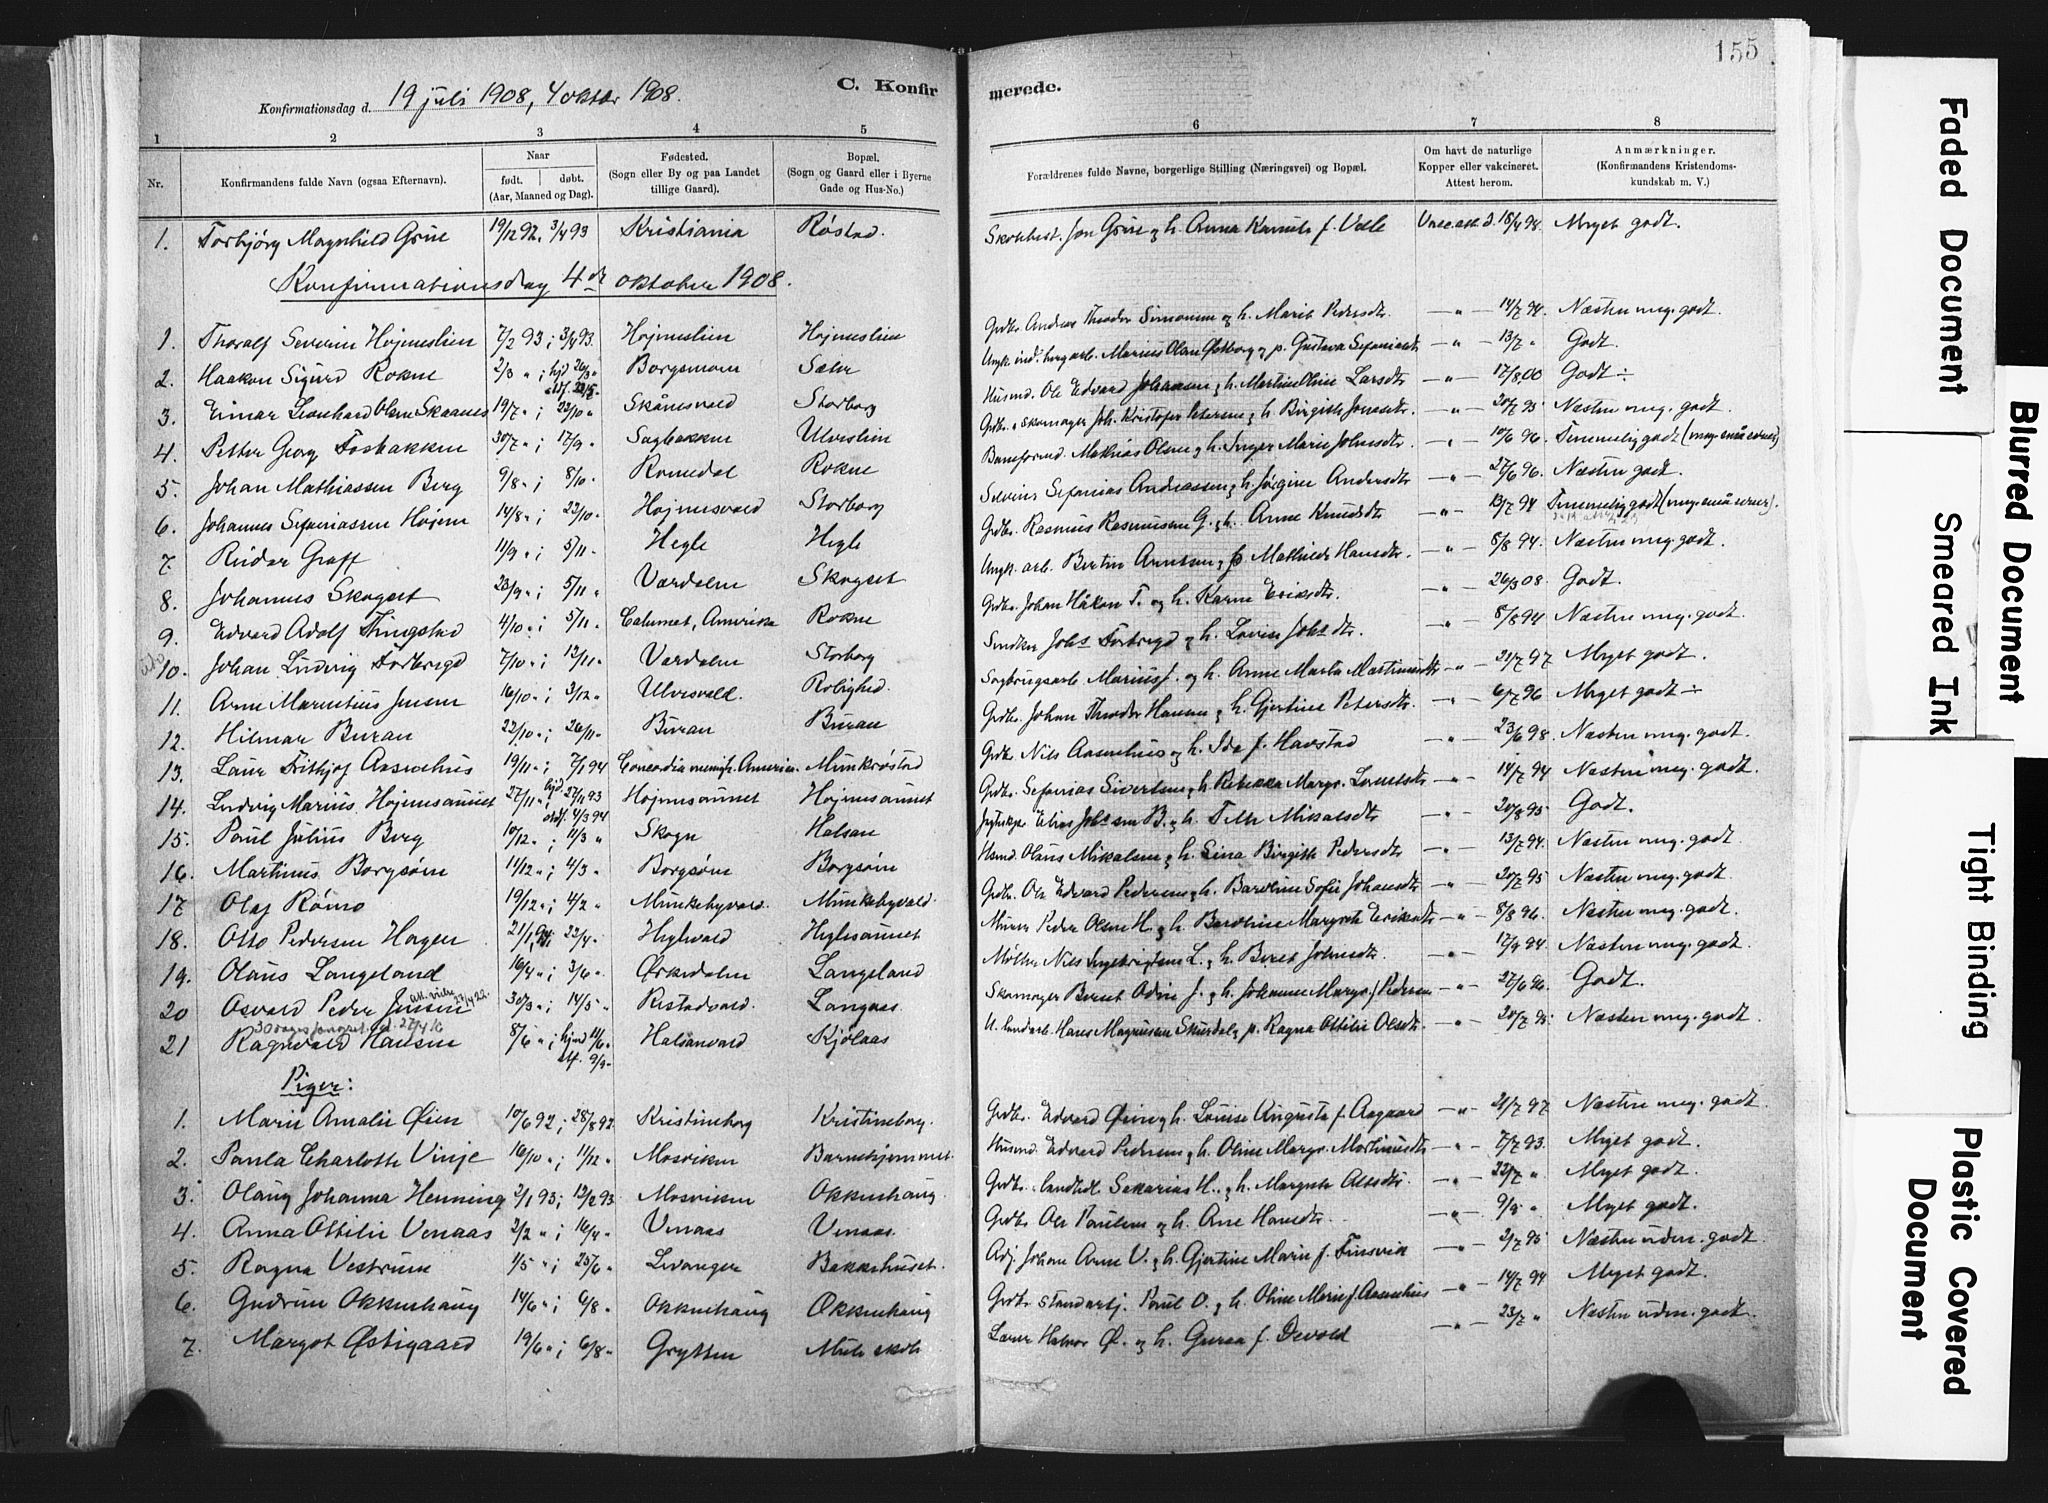 155
Konfirmationsdag d. 19 juli 1908, 4 oktbr 1908.
C. Konfirmerede.
1 2 3 4 5 6 7 8
Nr. Konfirmandens fulde Navn (ogsaa Efternavn). Naar født. døbt. (Aar, Maaned og Dag). Fødested. (Sogn eller By og paa Landet tillige Gaard). Bopæl. (Sogn og Gaard eller i Byerne Gade og Hus-No.) Forældrenes fulde Navne, borgerlige Stilling (Næringsvei) og Bopæl. Om havt de naturlige Kopper eller vakcineret. Attest herom. Anmærkninger. (Konfirmandens Kristendomskundskab m. V.)
1. Torbjørg Magnhild Grue 19/12 92. 3/4 93 Kristiania Røstad. Jon Grue og h. Anna f. Velle 18/4 98. Meget godt.
Konfirmationsdag 4de oktober 1908.
1. Thoralf Severin Højmeslien 7/2 93; 3/4 93. Højmeslien Højmeslien Grdbr. Andreas Theodor Simonsen og h. Marit Pedersdtr. — " — 14/7 94. Næsten meg. godt.
2. Haakon Sigurd Rokne 2/3 "; hjd 26/3 " Borgsmoen Sæter Marius Olsen Østborg og p. Gustava Sefaniasdtr — " — 13/7 " Godt.
3. Einar Leonhard Olsen Skaanes 19/7 "; 22/10 " Skånesvald Storborg Husmd. Ole Edvard Johansen og h. Martha Oline Larsdtr — " — 17/8 00 Godt ÷
4. Petter Georg Fosbakken 30/7 "; 17/9 " Sagbakken Ulveslien Grdbr. & skomager Joh. Kristofer Petersen og h. Birgitte Jonasdtr. — " — 20/7 95 Næsten meg. godt.
5. Johan Mathiassen Berg 9/8 "; 8/10 " Romedal Rokne Baneformd. Mathias Olsen og h. Inger Marie Johnsdtr. — " — 10/6 96. Temmelig godt (meg. små evner)
6. Johannes Sefaniassen Højem 14/8 "; 22/10 " Højmesvald Storborg Selveier Sefanias Andreassen og h. Jørgine Andersdtr — " — 27/6 96. Næsten godt.
7 Reidar Graff 11/9 "; 5/11 " Hegle Hegle Grdbr. Rasmus Rasmussen G. og h. Anne Knudsdtr — " — 13/7 94 Temmelig godt (meg. små evner).
8. Johannes Skogset 23/9 "; 5/11 " Værdalen Skogset Ungk. arb. Bertin Arntsen og p. Mathilde Hansdtr. — " — 8/8 94. Næsten meg. godt.
9. Edvard Adolf Tingstad 4/10 "; 5/11 " Calumet, Amerika Rokne Grdbr. Johan Håkon T. og h. Karen Eriksdtr. — " — 26/3 08. Godt.
10. Johan Ludvig Forbregd 7/10 "; 12/11 " Værdalen Storborg Snedker Johs Forbregd og h. Lovise Johsdtr. — " — 8/8 94 Næsten meg. godt.
11. Arne Mauritius Jensen 16/10 "; 3/12 " Ulvesvald. Rolighed. Sagbrugsarb. Marius J. og h. Anne Marta Martinusdtr — " — 21/7 97 Meget godt.
12. Hilmar Buran 22/10 "; 26/11 " Buran Buran Grdbr. Johan Theodor Hansen og h. Gjertine Petersdtr. — " — 6/7 96 Meget godt ÷
13. Laur Frithjof Aasenhus 19/11 "; 7/1 94 Concordia menigh. Amerika Munkrøstad Grdbr. Nils Aasenhus og h. Ida f. Havstad — " — 23/6 98. Næsten meg. godt.
14. Ludvig Marius Højmesaunet 27/11 "; hjd. 27/11 93 stdf. 4/3 94 Højmesaunet Højmesaunet Grdbr. Sefanias Sivertsen og h. Rebekka Margr. Lorntsdtr — " — 14/7 94 Næsten meg. godt.
15. Paul Julius Berg 10/12 "; 11/3 " Skogn Halsan Elias Johsen B. og h. Mikalsdtr — " — 20/8 95 Godt.
16. Martinus Borgsøin 14/12 "; 4/3 " Borgsøin Borgsøin Husmd. Olaus Mikalsen og h. Sina Birgitte Pedersdtr — " — 13/7 94. Næsten meg. godt.
17 Olaf Rømo 19/12 "; 4/2 " Munkebyvald. Munkebyvald. Grdbr. Ole Edvard Pedersen og h. Baroline Sofie Johansdtr — " — 20/7 95 Næsten meg. godt.
18. Otto Pedersen Hagen 21/1 94; 22/4 " Heglvald Heglesaunet Murer Peder Olsen H. og h. Baroline Margrete Eriksdtr — " — 8/8 96. Næsten meg. godt.
19. Olaus Langeland 16/4 "; 3/6 " Ørkedalen Langeland Møller Nils Ingebrigtsen L. og h. Beret Johnsdtr. — " — 17/9 94. Næsten meg. godt.
20 Osvald Peder Jensen 30/3 "; 14/5 " Ristadvald. Langaas. Skomager Bernt Odin J. og h. Johanne Margr. Pedersen — " — 27/6 96. Godt.
21 Ragnvald Hansen 8/6 "; hjmd 11/6 " stf. 9/9 " Halsanvald Kjølaas Hans Magnussen Skurdal og p. Ragna Ottilie Olsdtr. — " — 20/7 95 Næsten meg. godt.
Piger:
1. Marie Amalie Øien 10/6 92; 28/8 92. Kristineborg Kristineborg. Grdbr. Edvard Øien og h. Louise Augusta f. Aagaard — " — 21/7 97 Næsten meg. godt
2. Paula Charlotte Vinje 16/10 "; 11/12 " Mosviken Barnehjemmet. Husmd. Edvard Pedersen og h. Oline Margr. Martinusdtr — " — 7/7 93. Meget godt.
3. Olaug Johanna Henning 2/1 93; 12/2 93. Mosviken Okkenhaug Grdbr. Sakarias H. og h. Margrete — " — 22/7 " Meget godt.
4. Anna Ottilie Venaas 2/2 "; 16/4 " Venaas Venaas. Grdbr Ole Paulsen og h. Ane Hansdtr. — " — 9/9 " Meget godt.
5. Ragna Vestrum 1/5 "; 25/6 " Levanger Bakkehuset. Adj. Johan Arne V. og h. Gjertine Marie f. Finsvik — " — 2/7 95 Næsten uden. godt.
6. Gudrun Okkenhaug 14/6 "; 6/8 " Okkenhaug Okkenhaug Grdbr Paul O. og h. Oline Marie f. Aasenhus — " — 14/7 94 Meget godt.
7. Margot Østigaard 19/6 "; 6/8 " Grytten Mule skole Lærer Halvor Ø. og h. Guraa f. Devold — " — 23/7 " Næsten uden. godt.
Faded Document
Blurred Document
Smeared Ink
Tight Binding
Plastic Covered Document